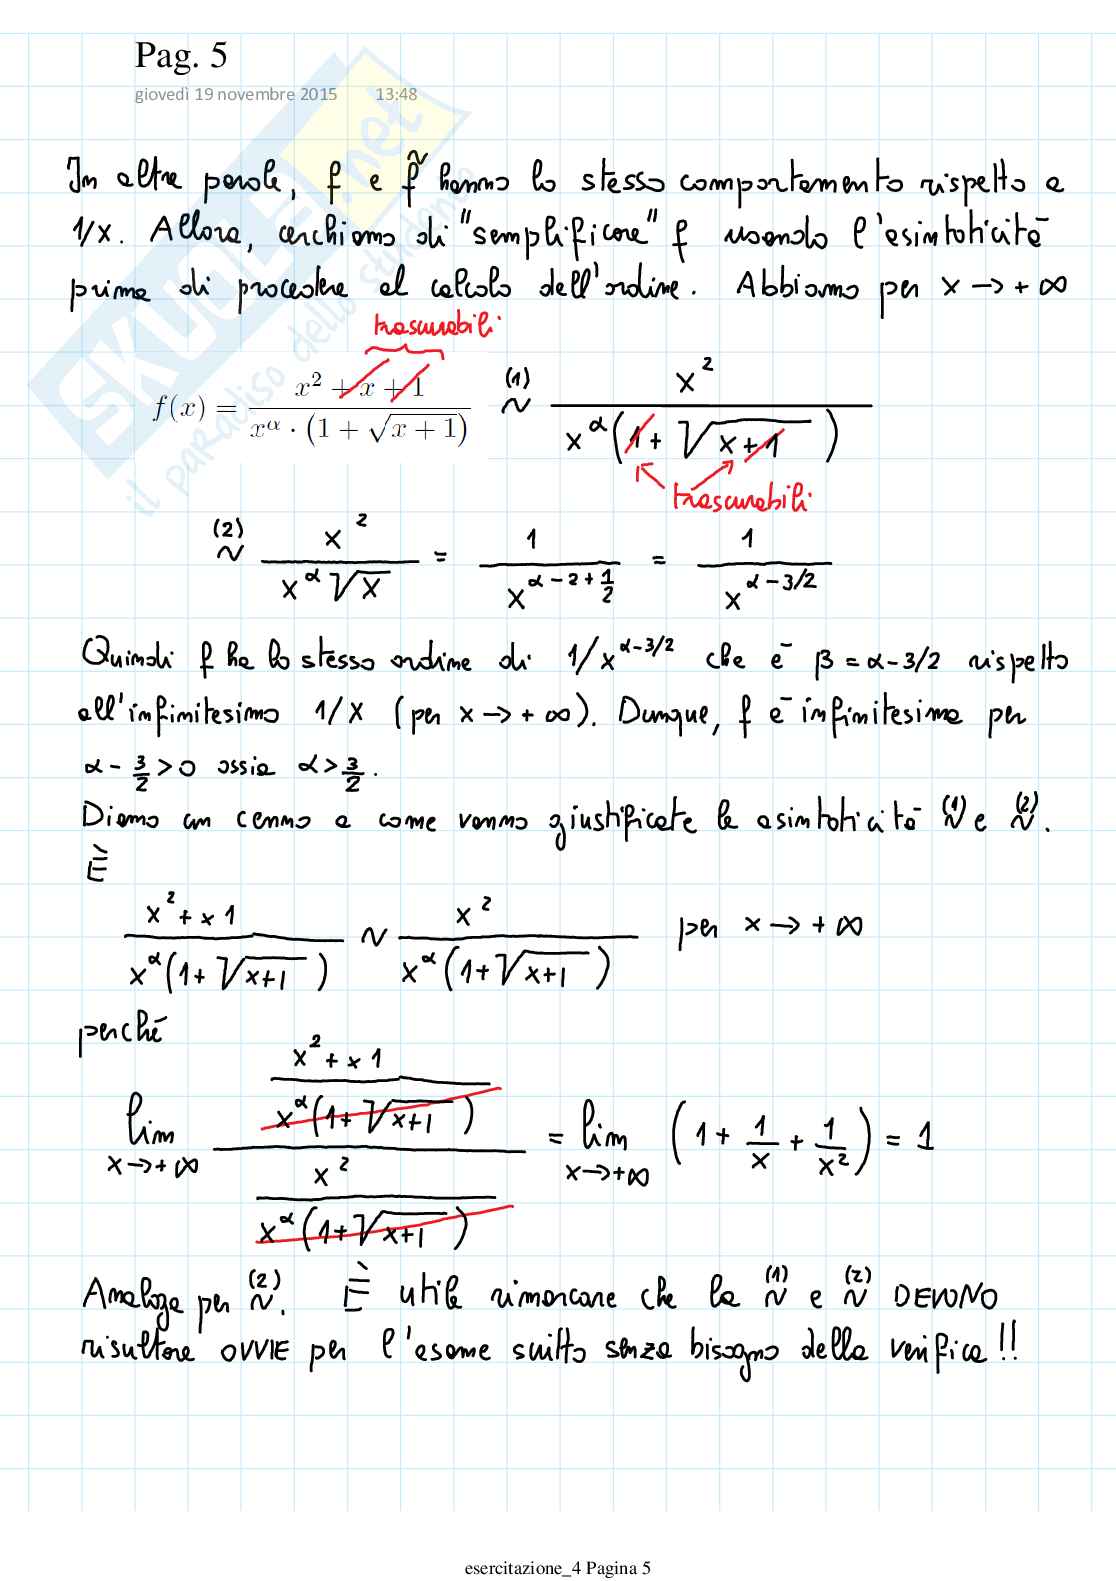 Pag. 5
giovedì 19 novembre 2015 13:48
In altre parole, f e f̃ hanno lo stesso comportamento rispetto a
1/x. Allora, cerchiamo di "semplificare" f usando l'asintoticità
prima di procedere al calcolo dell'ordine. Abbiamo per x → + ∞
trascurabili
f(x) = (x² + x + 1) / (x^α · (1 + √(x + 1))) ~(1) x² / (x^α (1 + √(x + 1)))
trascurabili
~(2) x² / (x^α √x) = 1 / x^(α - 2 + 1/2) = 1 / x^(α - 3/2)
Quindi f ha lo stesso ordine di 1/x^(α-3/2) che è β = α - 3/2 rispetto
all'infinitesimo 1/x (per x → + ∞). Dunque, f è infinitesima per
α - 3/2 > 0 ossia α > 3/2.
Diamo un cenno a come vanno giustificate le asintoticità ~(1) e ~(2).
È
(x² + x 1) / (x^α (1 + √(x+1))) ~ x² / (x^α (1 + √(x+1))) per x → + ∞
perché
lim x→+∞ ((x² + x 1) / (x^α (1 + √(x+1)))) / (x² / (x^α (1 + √(x+1)))) = lim x→+∞ (1 + 1/x + 1/x²) = 1
Analoga per ~(2). È utile rimarcare che la ~(1) e ~(2) DEVONO
risultare OVVIE per l'esame scritto senza bisogno della verifica!!
esercitazione_4 Pagina 5
SKUOLA.net
il paradiso dello studente